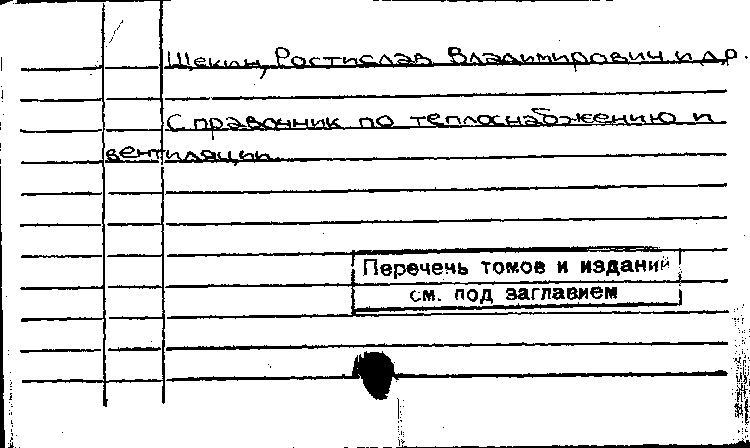 Щекин, Ростислав Владимирович и др.
Справочник по теплоснабжению и
вентиляции
Перечень томов и изданий
см. под заглавием